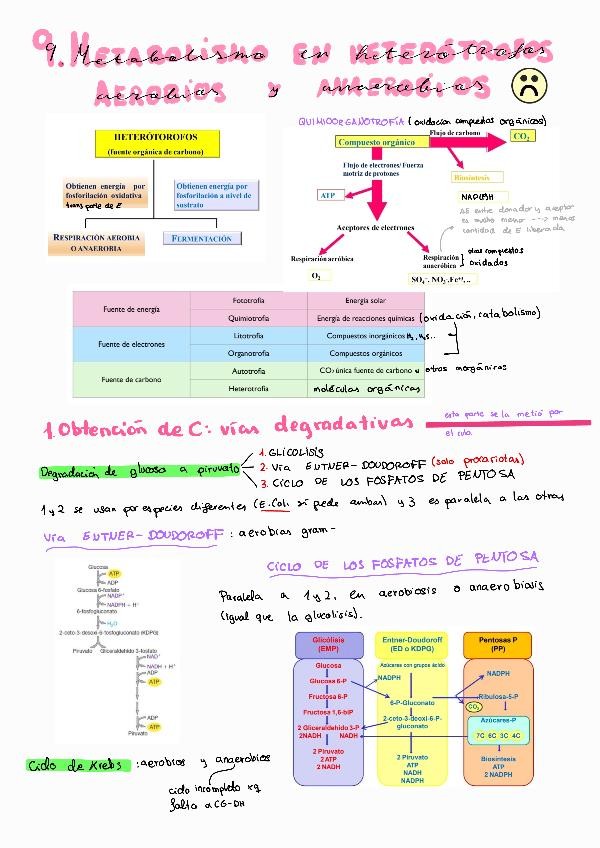 9. Metabolismo en heterótrofos
aerobios y anaerobios
HETERÓTOROFOS
(fuente orgánica de carbono)
Obtienen energía por
fosforilación oxidativa
transporte de E
Obtienen energía por
fosforilación a nivel de
sustrato
RESPIRACIÓN AEROBIA
O ANAEROBIA
FERMENTACIÓN
QUIMIOORGANOTROFÍA (oxidación compuestos orgánicos)
Compuesto orgánico
Flujo de carbono
CO₂
Flujo de electrones/ Fuerza
motriz de protones
Biosíntesis
ATP
NADPH
ΔE entre donador y aceptor
es mucho menor --> menos
cantidad de E liberada
Aceptores de electrones
Respiración aeróbica
O₂
Respiración
anaeróbica
otros compuestos
oxidados
SO₄⁼, NO₃⁻,Fe³⁺,..
Fuente de energía
Fototrofía
Energía solar
Quimiotrofía
Energía de reacciones químicas (oxidación, catabolismo)
Fuente de electrones
Litotrofía
Compuestos inorgánicos H₂, H₂S..
Organotrofía
Compuestos orgánicos
Fuente de carbono
Autotrofía
CO₂ única fuente de carbono u otros inorgánicos
Heterotrofía
moléculas orgánicas
1. Obtención de C: vías degradativas
esta parte se la metió por
el culo.
Degradación de glucosa a piruvato
1. GLICOLISIS
2. Vía ENTNER-DOUDOROFF (solo procariotas)
3. CICLO DE LOS FOSFATOS DE PENTOSA
1 y 2 se usan por especies diferentes (E.Coli sí pede ambas) y 3 es paralela a las otras
Vía ENTNER-DOUDOROFF: aerobias gram-
CICLO DE LOS FOSFATOS DE PENTOSA
Paralela a 1 y 2, en aerobiosis o anaerobiosis
(igual que la glucolisis).
Glucosa
ATP
ADP
Glucosa 6-fosfato
NADP⁺
NADPH + H⁺
6-fosfogluconato
H₂O
2-ceto-3-desoxi-6-fosfogluconato (KDPG)
Piruvato
Gliceraldehído 3-fosfato
NAD⁺
NADH + H⁺
ADP
ATP
ADP
ATP
Piruvato
Glicólisis
(EMP)
Glucosa
Glucosa 6-P
Fructosa 6-P
Fructosa 1,6-biP
2 Gliceraldehido 3-P
2NADH
2 Piruvato
2 ATP
2 NADH
Entner-Doudoroff
(ED o KDPG)
Azúcares con grupos ácido
NADPH
6-P-Gluconato
2-ceto-3-deoxi-6-P-
gluconato
NADH
2 Piruvato
ATP
NADH
NADPH
Pentosas P
(PP)
NADPH
Ribulosa-5-P
CO₂
Azúcares-P
7C 6C 3C 4C
Biosíntesis
ATP
2 NADPH
Ciclo de Krebs: aerobios y anaerobios
ciclo incompleto xq
falta α CG-DH